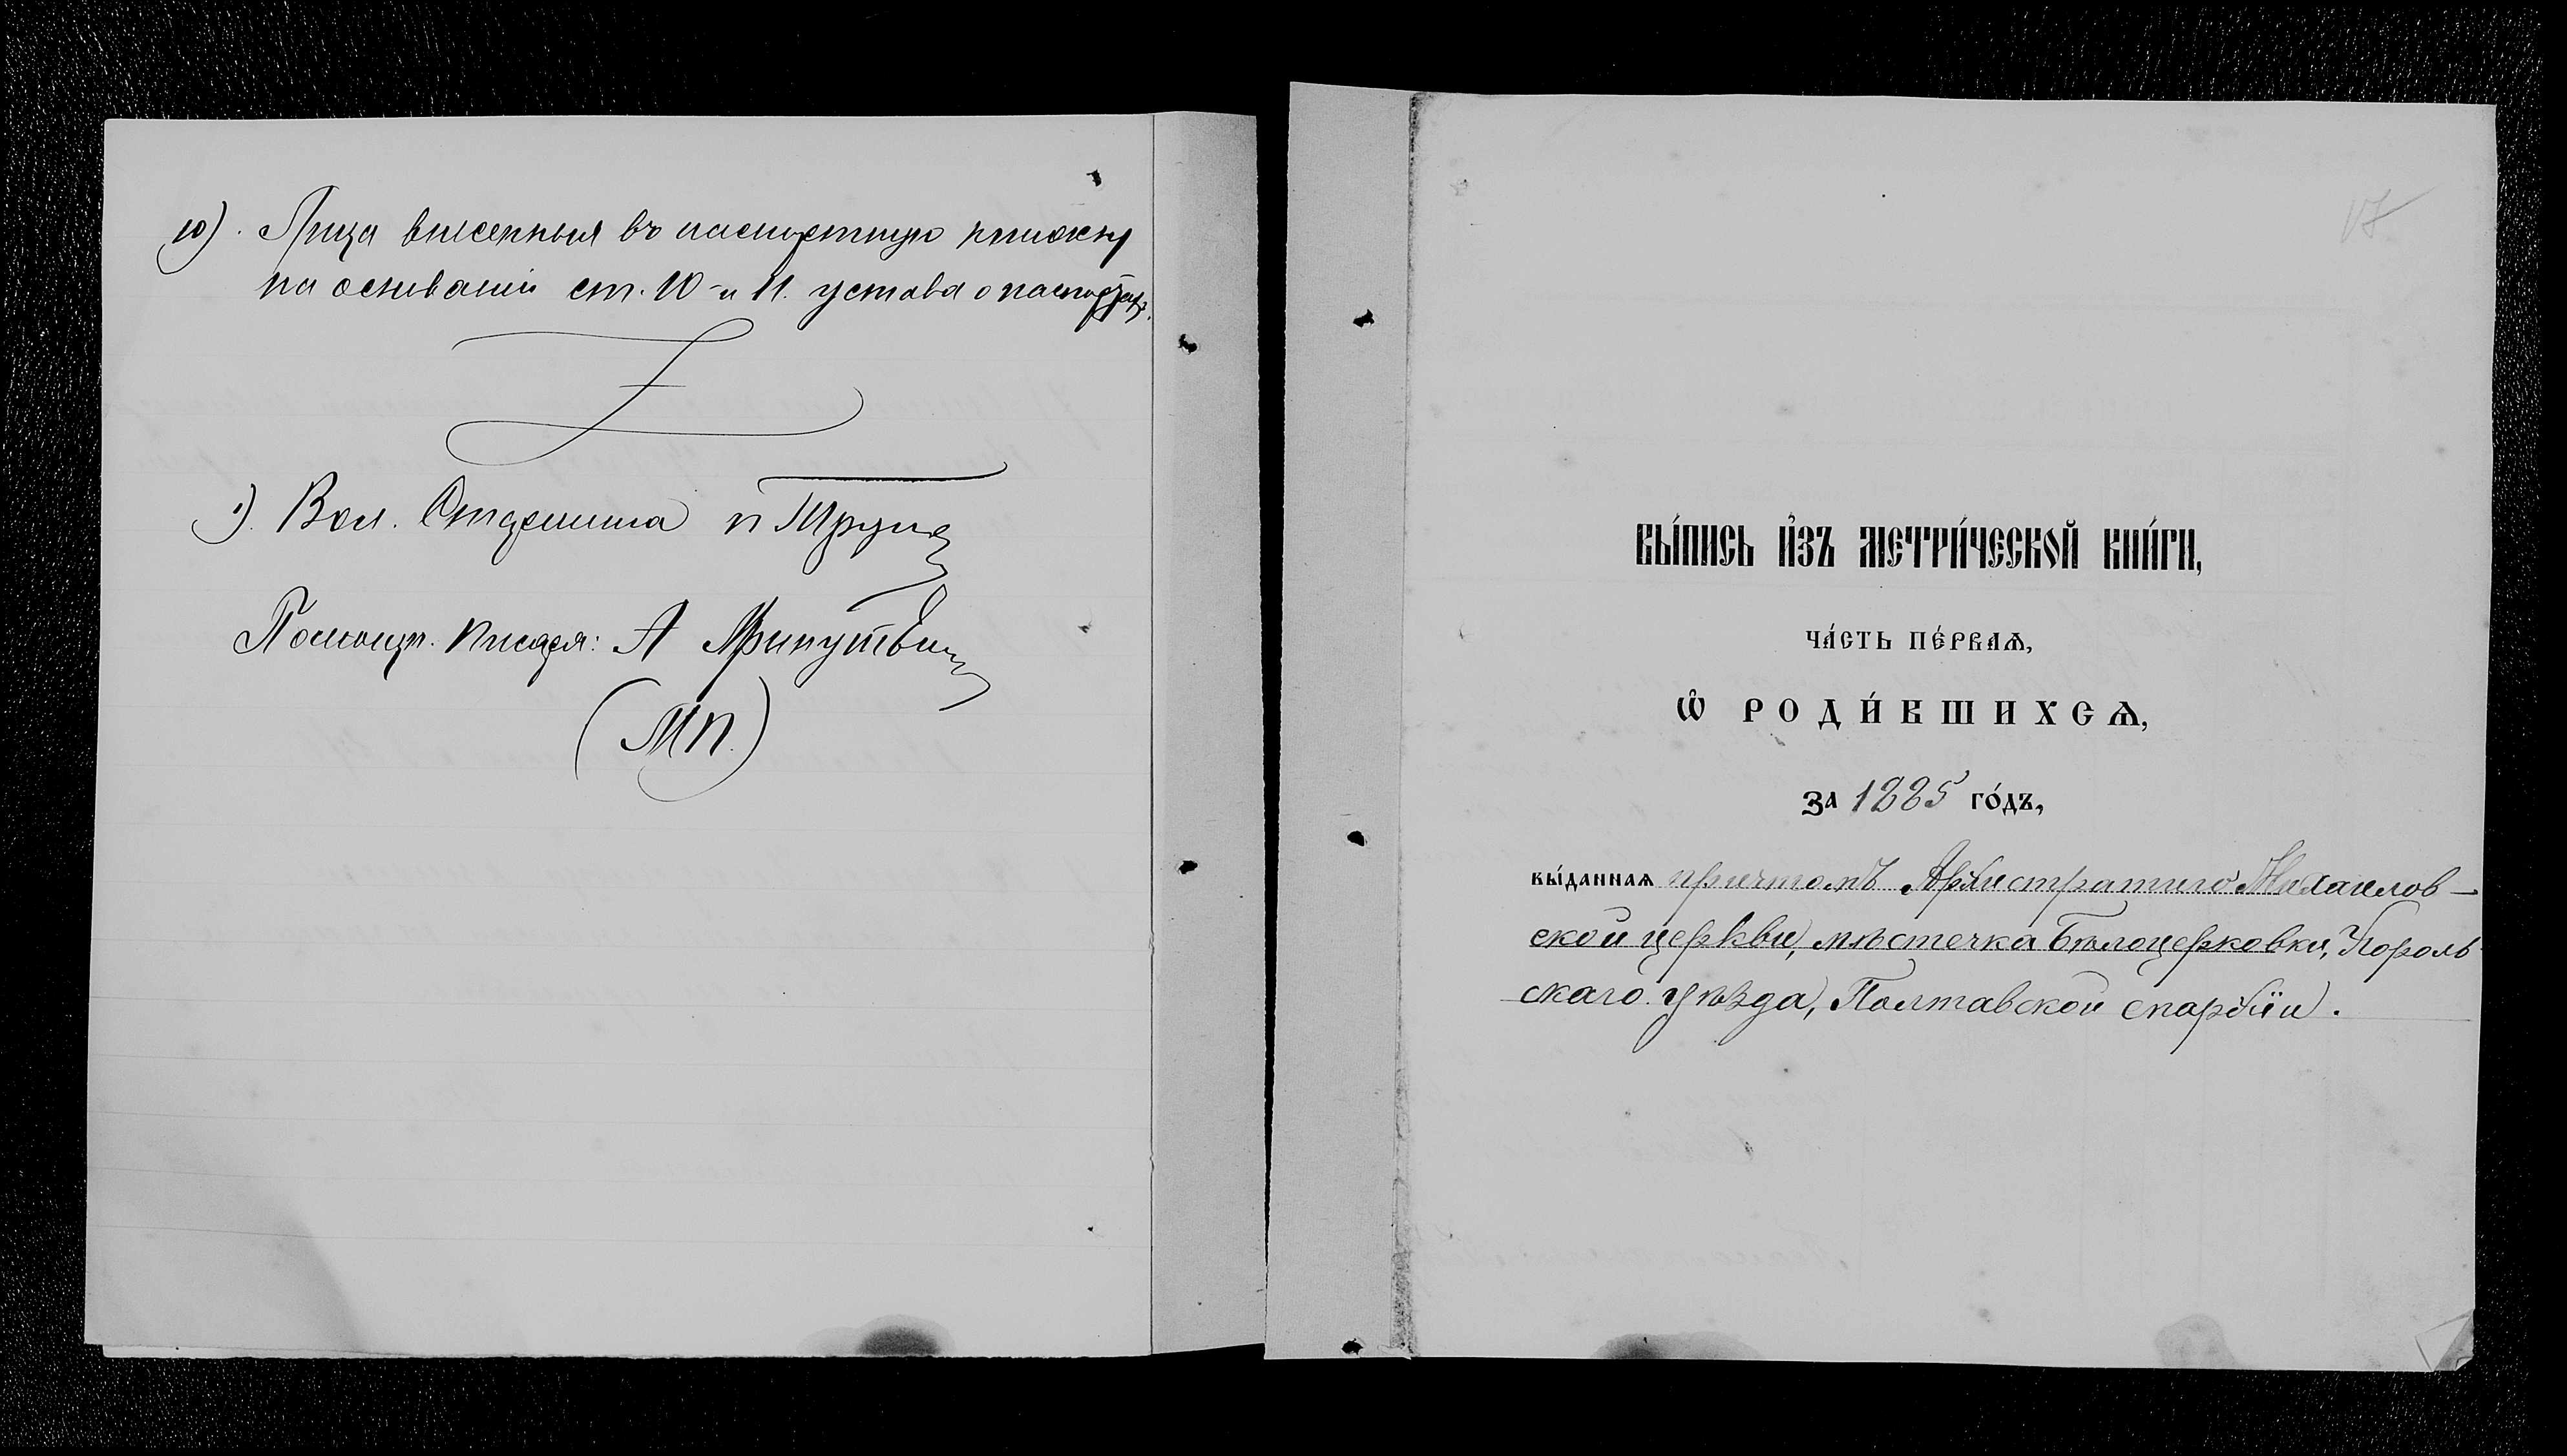 10). Лица внесенныя въ паспортную книжку
на основаніи ст. 10 и 11. устава о паспортахъ.
1). Вол. Старшина п Труш
Помощн. писаря: А
(МП.)
17
ВЫ́ПИСЬ И҆ЗЪ МЕТРИ́ЧЕСКОЙ КНИ́ГИ,
ЧА́СТЬ ПЕ́РВАѦ,
Ѽ РОДИ́ВШИХСѦ,
ЗА 1885 ГО́ДЪ,
ВЫ́ДАННАѦ причтомъ Архистратиго Михаилов-
ской церкви, мѣстечка Бѣлоцерковки, Хороль
скаго уѣзда, Полтавской епархіи.